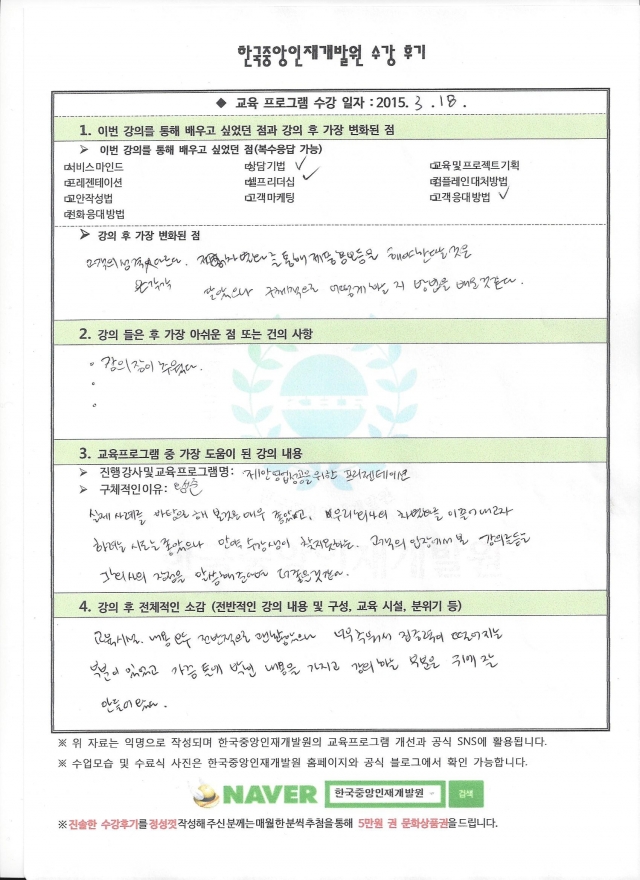 한국중앙인재개발원 수강 후기
◆ 교육 프로그램 수강 일자 : 2015. 3 . 18 .
1. 이번 강의를 통해 배우고 싶었던 점과 강의 후 가장 변화된 점
➤ 이번 강의를 통해 배우고 싶었던 점(복수응답 가능)
□서비스마인드 □상담기법 ✓ □교육및프로젝트기획
□프레젠테이션 □셀프리더십 ✓ □컴플레인대처방법
□교안작성법 □고객마케팅 □고객응대방법 ✓
□전화응대방법
➤ 강의 후 가장 변화된 점
고객의 성격 통해 해야한다는 것은
알았으나 구체적으로 어떻게 할 지 방법을 배운 것 같다.
2. 강의 들은 후 가장 아쉬운 점 또는 건의 사항
• 강의장이 추웠다.
•
•
3. 교육프로그램 중 가장 도움이 된 강의 내용
➤ 진행강사및교육프로그램명: 제안영업성공을 위한 프리젠테이션
➤ 구체적인이유:
실제 사례를 바탕으로 해 매우 좋았고, 변화를 이끌어 내고자
하려는 시도는 좋았으나 만약 수강생이 고객의 입장에서 본
장점을 말해
4. 강의 후 전체적인 소감 (전반적인 강의 내용 및 구성, 교육 시설, 분위기 등)
교육시설, 내용 모두 전반적으로 괜찮았으나 너무 추워서 집중력이 떨어지는
부분이 있었고 가끔 내용을 가지고 강의하는 부분은 귀에 잘
안들어 왔다.
※ 위 자료는 익명으로 작성되며 한국중앙인재개발원의 교육프로그램 개선과 공식 SNS에 활용됩니다.
※ 수업모습 및 수료식 사진은 한국중앙인재개발원 홈페이지와 공식 블로그에서 확인 가능합니다.
NAVER 한국중앙인재개발원 검색
※진솔한 수강후기를 정성껏 작성해 주신 분께는 매월 한 분씩 추첨을 통해 5만원 권 문화상품권을 드립니다.